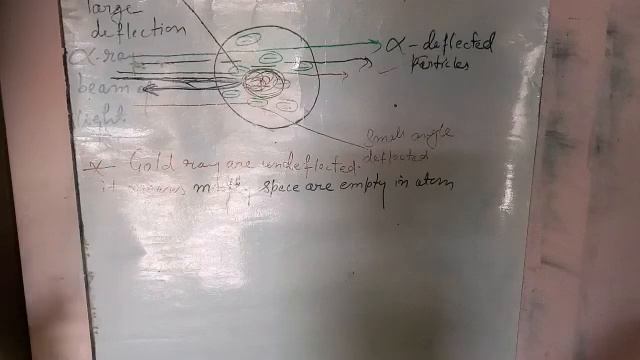 large
deflection
α-ray
beam of
light.
α-deflected
particles
Small angle
deflected
Gold ray are undeflected.
it means space are empty in atom